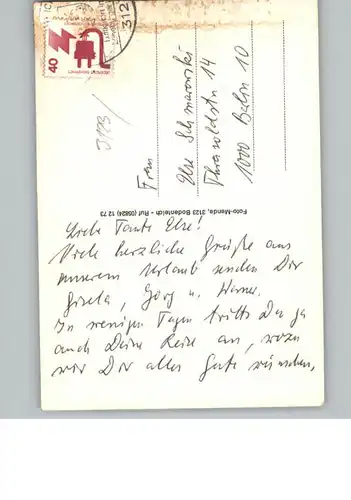 Liebe Tante Else!
Viele herzliche Grüße aus
unserem Urlaub senden Dir
Gisela, Georg u. Werner.
In wenigen Tagen trittst Du ja
auch Deine Reise an, wozu
wir Dir alles Gute wünschen.
Frau
Else Schmarowski
14
1000 Berlin 10
Foto-Mende, 3123 Bodenteich - Ruf (05824) 12 73
40
312
3123